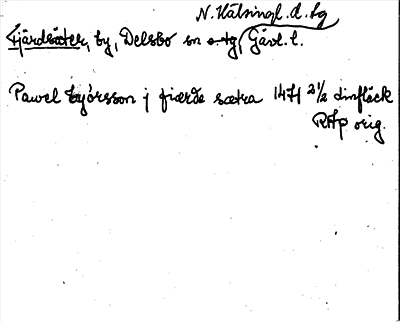 N. Hälsingl. d. tg
Fjärdsäter, by, Delsbo sn o tg, Gävl. l.
Pawel Ey̓orsson j fiærde sætra 1471 2½ dinfläck
RAp orig.